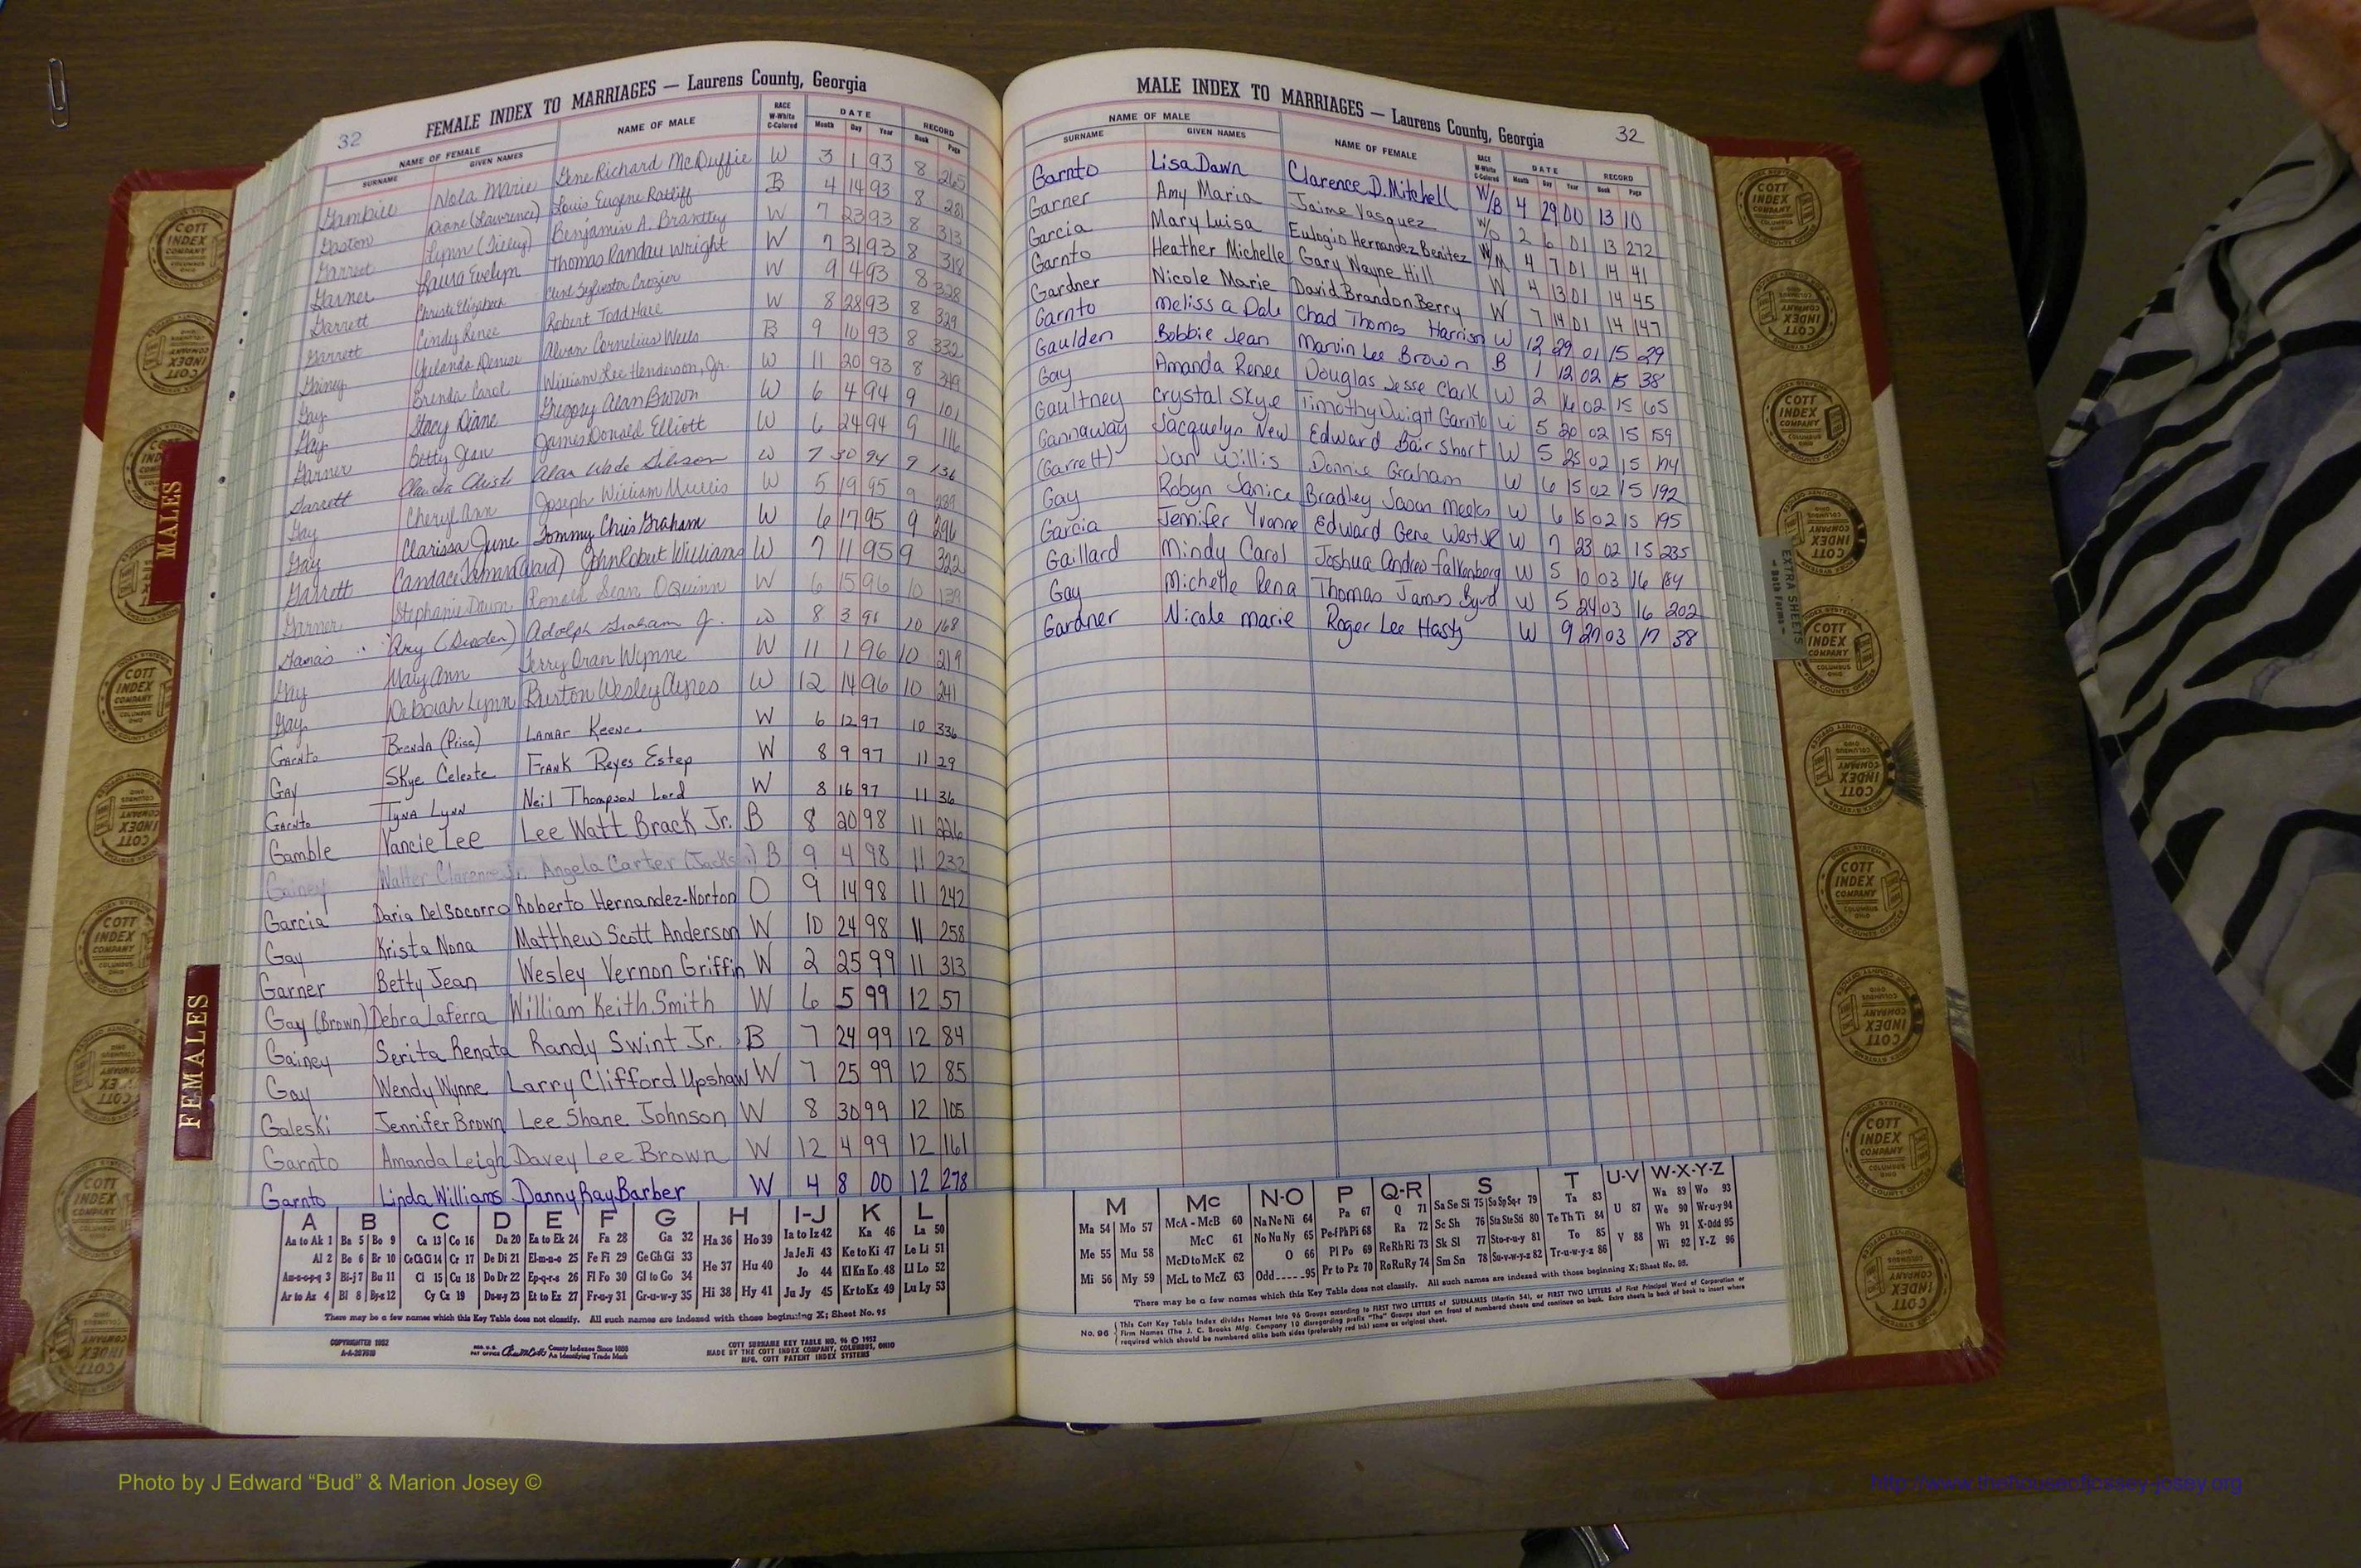 32
FEMALE INDEX TO MARRIAGES — Laurens County, Georgia
NAME OF FEMALE NAME OF MALE RACE W-White C-Colored DATE RECORD
SURNAME GIVEN NAMES Month Day Year Book Page
Gambill Nola Marie Gene Richard McDuffie W 3 1 93 8 265
Gaston Diane (Lawrence) Louis Eugene Ratliff B 4 14 93 8 281
Garrett Lynn (Tilley) Benjamin A. Brantley W 7 23 93 8 313
Garner Laura Evelyn Thomas Randall Wright W 7 31 93 8 318
Garrett Christi Elizabeth Clint Sylvester Crozier W 9 4 93 8 328
Garrett Cindy Renee Robert Todd Hall W 8 28 93 8 329
Gainey Yulanda Denise Alvin Cornelius Wells B 9 10 93 8 332
Gay Brenda Carol William Lee Henderson, Jr. W 11 20 93 8 349
Gay Stacy Diane Gregory Alan Brown W 6 4 94 9 101
Garner Betty Jean James Donald Elliott W 6 24 94 9 116
Garrett Alan Wade Gibson W 7 30 94 9 136
Gay Cheryl Ann Joseph William Mullis W 5 19 95 9 289
Gay Clarissa June Tommy Chris Graham W 6 17 95 9 296
Garrett Candace (Ward) John Robert Williams W 7 11 95 9 322
Garner Stephanie Dawn Ronald Sean OQuinn W 6 15 96 10 139
Adolph Graham Jr. W 8 3 96 10 168
Gay Mary Ann Terry Oran Wynne W 11 1 96 10 219
Gay Deborah Lynn Burton Wesley Ayres W 12 14 96 10 241
Garnto Brenda (Price) Lamar Keene W 6 12 97 10 336
Gay Skye Celeste Frank Reyes Estep W 8 9 97 11 29
Garnto Tyna Lynn Neil Thompson Lord W 8 16 97 11 36
Gamble Vancie Lee Lee Watt Brack Jr. B 8 20 98 11 226
Gainey Walter Clarence Jr. Angela Carter (Jackson) B 9 4 98 11 232
Garcia Daria DelSocorro Roberto Hernandez-Norton O 9 14 98 11 242
Gay Krista Nona Matthew Scott Anderson W 10 24 98 11 258
Garner Betty Jean Wesley Vernon Griffin W 2 25 99 11 313
Gay (Brown) Debra Laferra William Keith Smith W 6 5 99 12 57
Gainey Serita Renata Randy Swint Jr. B 7 24 99 12 84
Gay Wendy Wynne Larry Clifford Upshaw W 7 25 99 12 85
Galeski Jennifer Brown Lee Shane Johnson W 8 30 99 12 105
Garnto Amanda Leigh Davey Lee Brown W 12 4 99 12 161
Garnto Linda Williams Danny Ray Barber W 4 8 00 12 278
A B C D E F G H I-J K L
Aa to Ak 1 Ba 5 Bo 9 Ca 13 Co 16 Da 20 Ea to Ek 24 Fa 28 Ga 32 Ha 36 Ho 39 Ia to Iz 42 Ka 46 La 50
Al 2 Be 6 Br 10 CeChCi 14 Cr 17 De Di 21 El-m-n-o 25 Fe Fi 29 Ge Gh Gi 33 He 37 Hu 40 Ja Je Ji 43 Ke to Ki 47 Le Li 51
Am-n-o-p-q 3 Bi-j 7 Bu 11 Cl 15 Cu 18 Do Dr 22 Ep-q-r-s 26 Fl Fo 30 Gl to Go 34 Jo 44 Kl Kn Ko 48 Ll Lo 52
Ar to Az 4 Bl 8 By-z 12 Cy Cz 19 Du-w-y 23 Et to Ez 27 Fr-u-y 31 Gr-u-w-y 35 Hi 38 Hy 41 Ju Jy 45 Kr to Kz 49 Lu Ly 53
There may be a few names which this Key Table does not classify. All such names are indexed with those beginning X; Sheet No. 95
COPYRIGHTED 1952
County Indexes Since 1888
An Identifying Trade Mark
COTT SURNAME KEY TABLE NO. 96 © 1952
MADE BY THE COTT INDEX COMPANY, COLUMBUS, OHIO
MFG. COTT PATENT INDEX SYSTEMS
MALES
FEMALES
MALE INDEX TO MARRIAGES — Laurens County, Georgia
32
NAME OF MALE NAME OF FEMALE RACE W-White C-Colored DATE RECORD
SURNAME GIVEN NAMES Month Day Year Book Page
Garnto Lisa Dawn Clarence D. Mitchell W/B 4 29 00 13 10
Garner Amy Maria Jaime Vasquez W/O 2 6 01 13 272
Garcia Mary Luisa Eulogio Hernandez Benitez W/M 4 7 01 14 41
Garnto Heather Michelle Gary Wayne Hill W 4 13 01 14 45
Gardner Nicole Marie David Brandon Berry W 7 14 01 14 147
Garnto Melissa Dale Chad Thomas Harrison W 12 29 01 15 29
Gaulden Bobbie Jean Marvin Lee Brown B 1 12 02 15 38
Gay Amanda Renee Douglas Jesse Clark W 2 16 02 15 65
Gaultney Crystal Skye Timothy Dwight Garnto W 5 20 02 15 159
Gannaway Jacquelyn New Edward Bair Short W 5 25 02 15 174
(Garrett) Jan Willis Donnie Graham W 6 15 02 15 192
Gay Robyn Janice Bradley Jason Meeks W 6 15 02 15 195
Garcia Jennifer Yvonne Edward Gene West Jr W 7 23 02 15 235
Gaillard Mindy Carol Joshua Andrew Falkenborg W 5 10 03 16 184
Gay Michelle Rena Thomas James Byrd W 5 24 03 16 202
Gardner Nicole Marie Roger Lee Hasty W 9 27 03 17 38
EXTRA SHEETS
— Both Forms —
M Mc N-O P Q-R S T U-V W-X-Y-Z
Ma 54 Mo 57 McA - McB 60 Na Ne Ni 64 Pa 67 Q 71 Sa Se Si 75 So Sp Sq-r 79 Ta 83 U 87 Wa 89 Wo 93
Me 55 Mu 58 McC 61 No Nu Ny 65 Pe-f Ph Pi 68 Ra 72 Sc Sh 76 Sta Ste Sti 80 Te Th Ti 84 We 90 Wr-u-y 94
McD to McK 62 O 66 Pl Po 69 Re Rh Ri 73 Sk Sl 77 Sto-r-u-y 81 To 85 V 88 Wh 91 X-Odd 95
Mi 56 My 59 McL to McZ 63 Odd-----95 Pr to Pz 70 Ro Ru Ry 74 Sm Sn 78 Su-v-w-y-z 82 Tr-u-w-y-z 86 Wi 92 Y-Z 96
There may be a few names which this Key Table does not classify. All such names are indexed with those beginning X; Sheet No. 95.
No. 96 This Cott Key Table Index divides Names into 96 Groups according to FIRST TWO LETTERS of SURNAMES (Martin 54), or FIRST TWO LETTERS of First Principal Word of Corporation or
Firm Names (The J. C. Brooks Mfg. Company 10 disregarding prefix "The" Groups start on front of numbered sheets and continue on back. Extra sheets in back of book to insert where
required which should be numbered alike both sides (preferably red ink) same as original sheet.
COTT INDEX COMPANY COLUMBUS OHIO
Photo by J Edward “Bud” & Marion Josey ©
http://www.thehouseofjossey-josey.org